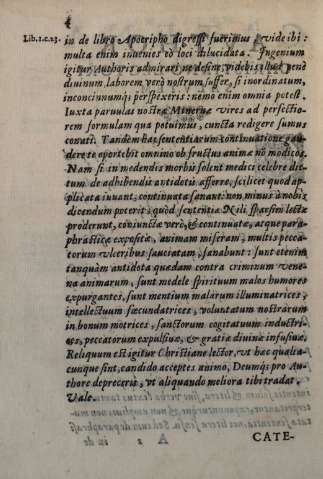 Lib.1.c.23.
in de libro Apocripho digressi fuerimus, vide ibi:
multa enim invenies eò loci dilucidata. Ingenium
igitur Authoris admirari ne desine, videbis illud penè
divinum, laborem verò nostrum suffer, si inordinatum,
inconcinnumq; perspexeris: nemo enim omnia potest.
Iuxta parvulas nostræ Minervæ vires ad perfectio-
rem formulam qua potuimus, cuncta redigere sumus
conati. Tandem has sententiarum continuatione gau-
dere te oportebit omnino ob fructus animæ nõ modicos.
Nam si in medendis morbis solent medici celebre dic-
tum de adhibendis antidotis afferre, scilicet quod ap-
plicata iuvant, continuata sanant: non minus à nobis
dicendum poterit, quòd sententiæ Nili sparsim lectæ
proderunt, coniunctæ verò, & continuatæ, atque para-
phrasticæ expositæ, animam miseram, multis pecca-
torum vlceribus sauciatam, sanabunt: sunt etenim
tanquam antidota quædam contra criminum vene-
na animarum, sunt medelæ spirituum malos humores
expurgantes, sunt mentium malarum illuminatrices,
intellectuum fœcundatrices, voluntatum nostrarum
in bonum motrices, sanctorum cogitatuum inductri-
ces, peccatorum expulsivæ, & gratiæ divinæ infusivæ.
Reliquum est igitur Christiane lector, vt hæc qualia-
cunque sint, candido acceptes animo, Deumq; pro Au-
thore depreceris, vt aliquando meliora tibi tradat.
Vale.
CATE-